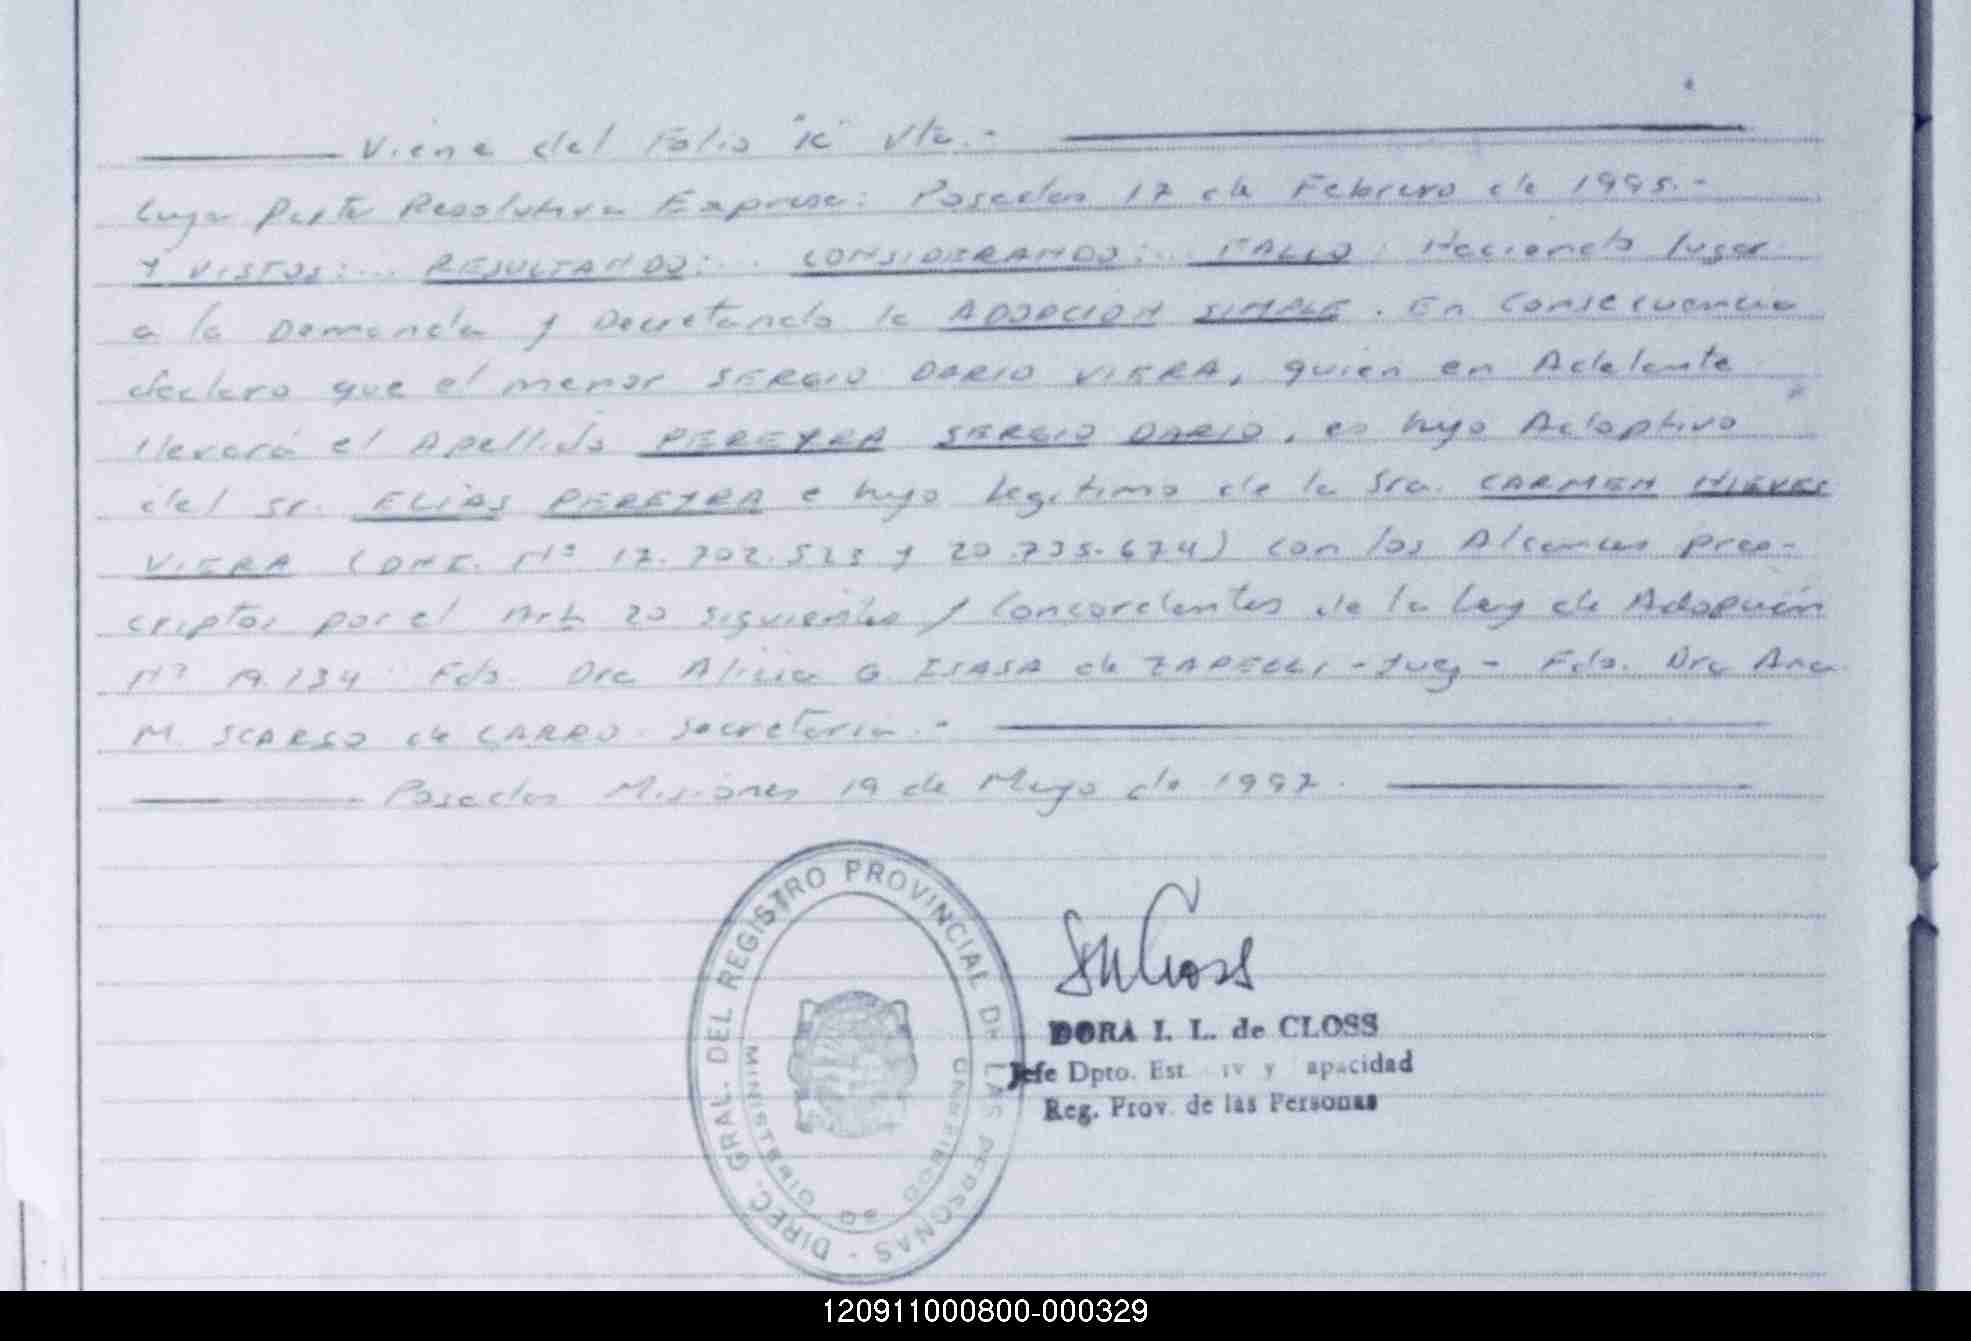 Viene del Folio "K" Vta.-
Cuya Parte Resolutiva Expresa: Posadas 17 de Febrero de 1995.-
Y VISTOS:... RESULTANDO:.. CONSIDERANDO:.. FALLO: Haciendo lugar
a la Demanda y Decretando la ADOPCION SIMPLE. En Consecuencia
declaro que el menor SERGIO DARIO VIERA, quien en Adelante
llevará el Apellido PEREYRA SERGIO DARIO, es hijo Adoptivo
del Sr. ELIAS PEREYRA e hijo legitimo de la Sra. CARMEN NIEVES
VIERA (DNI. Nº 17.702.523 y 20.735.674) con los Alcances pres-
criptos por el Art. 20 siguientes y Concordantes de la Ley de Adopción
Nº 19.134. Fdo. Dra Alicia G. ISASA de ZAPELLI - Juez - Fdo. Dra Ana
M. SCARSO de CARRO. Secretaria.-
Posadas Misiones 19 de Mayo de 1997.
DIREC. GRAL. DEL REGISTRO PROVINCIAL DE LAS PERSONAS -
MINISTERIO DE GOBIERNO
DORA I. L. de CLOSS
Jefe Dpto. Est. iv y apacidad
Reg. Prov. de las Personas
120911000800-000329